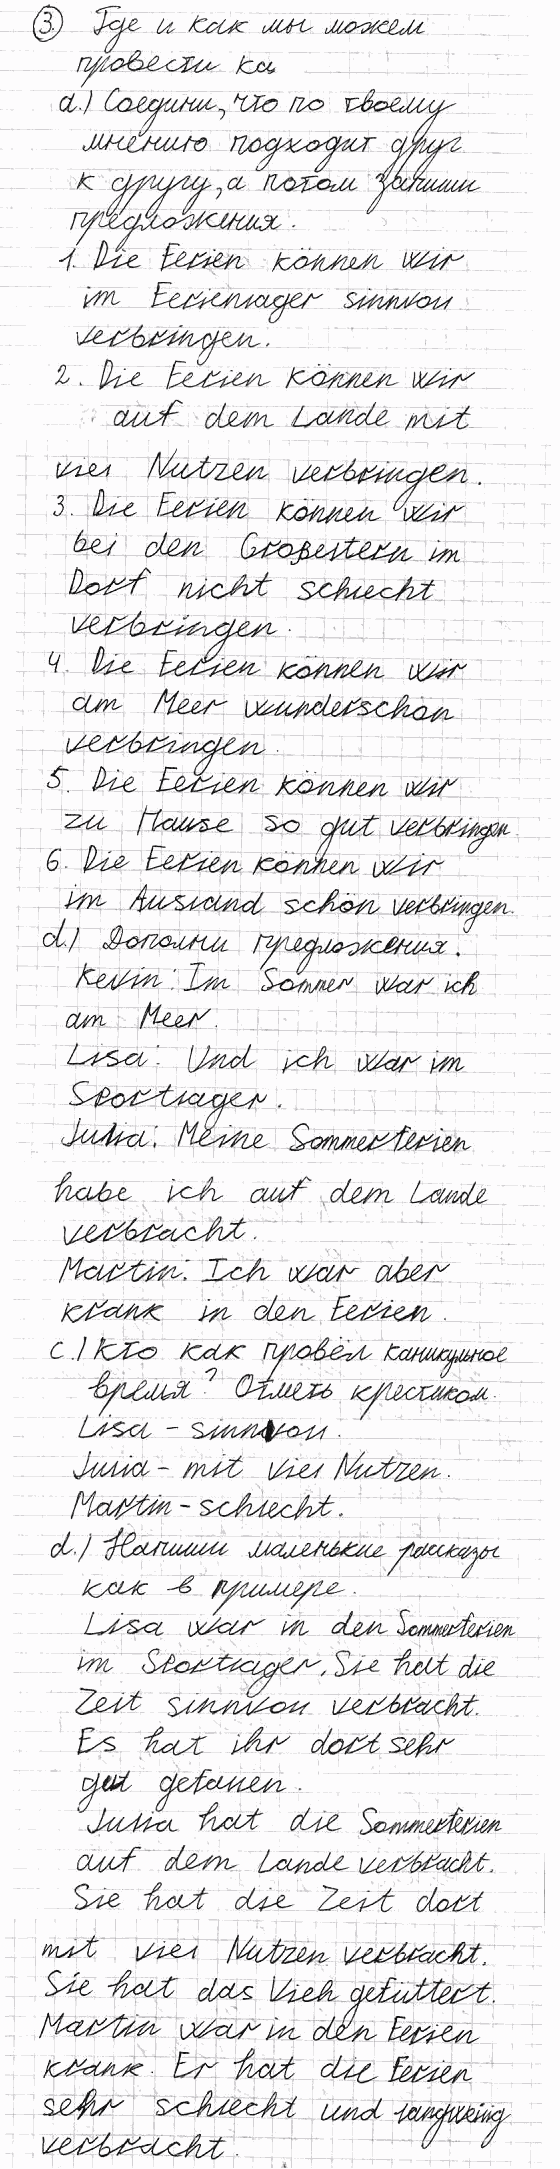 3. Где и как мы можем
провести ка
a.) Соедини, что по твоему
мнению подходит друг
к другу, а потом запиши
предложения.
1. Die Ferien können wir
im Ferienlager sinnvoll
verbringen.
2. Die Ferien können wir
auf dem Lande mit
viel Nutzen verbringen.
3. Die Ferien können wir
bei den Großeltern im
Dorf nicht schlecht
verbringen.
4. Die Ferien können wir
am Meer wunderschön
verbringen.
5. Die Ferien können wir
zu Hause so gut verbringen.
6. Die Ferien können wir
im Ausland schön verbringen.
d.) Дополни предложения.
Kevin: Im Sommer war ich
am Meer.
Lisa: Und ich war im
Sportlager.
Julia: Meine Sommerferien
habe ich auf dem Lande
verbracht.
Martin: Ich war aber
krank in den Ferien.
c.) Кто как провёл каникулное
время? Отметь крестиком.
Lisa - sinnvoll.
Julia - mit viel Nutzen.
Martin - schlecht.
d.) Напиши маленькие рассказы
как в примере.
Lisa war in den Sommerferien
im Sportlager. Sie hat die
Zeit sinnvoll verbracht.
Es hat ihr dort sehr
gut gefallen.
Julia hat die Sommerferien
auf dem Lande verbracht.
Sie hat die Zeit dort
mit viel Nutzen verbracht.
Sie hat das Vieh gefüttert.
Martin war in den Ferien
krank. Er hat die Ferien
sehr schlecht und langweilig
verbracht.